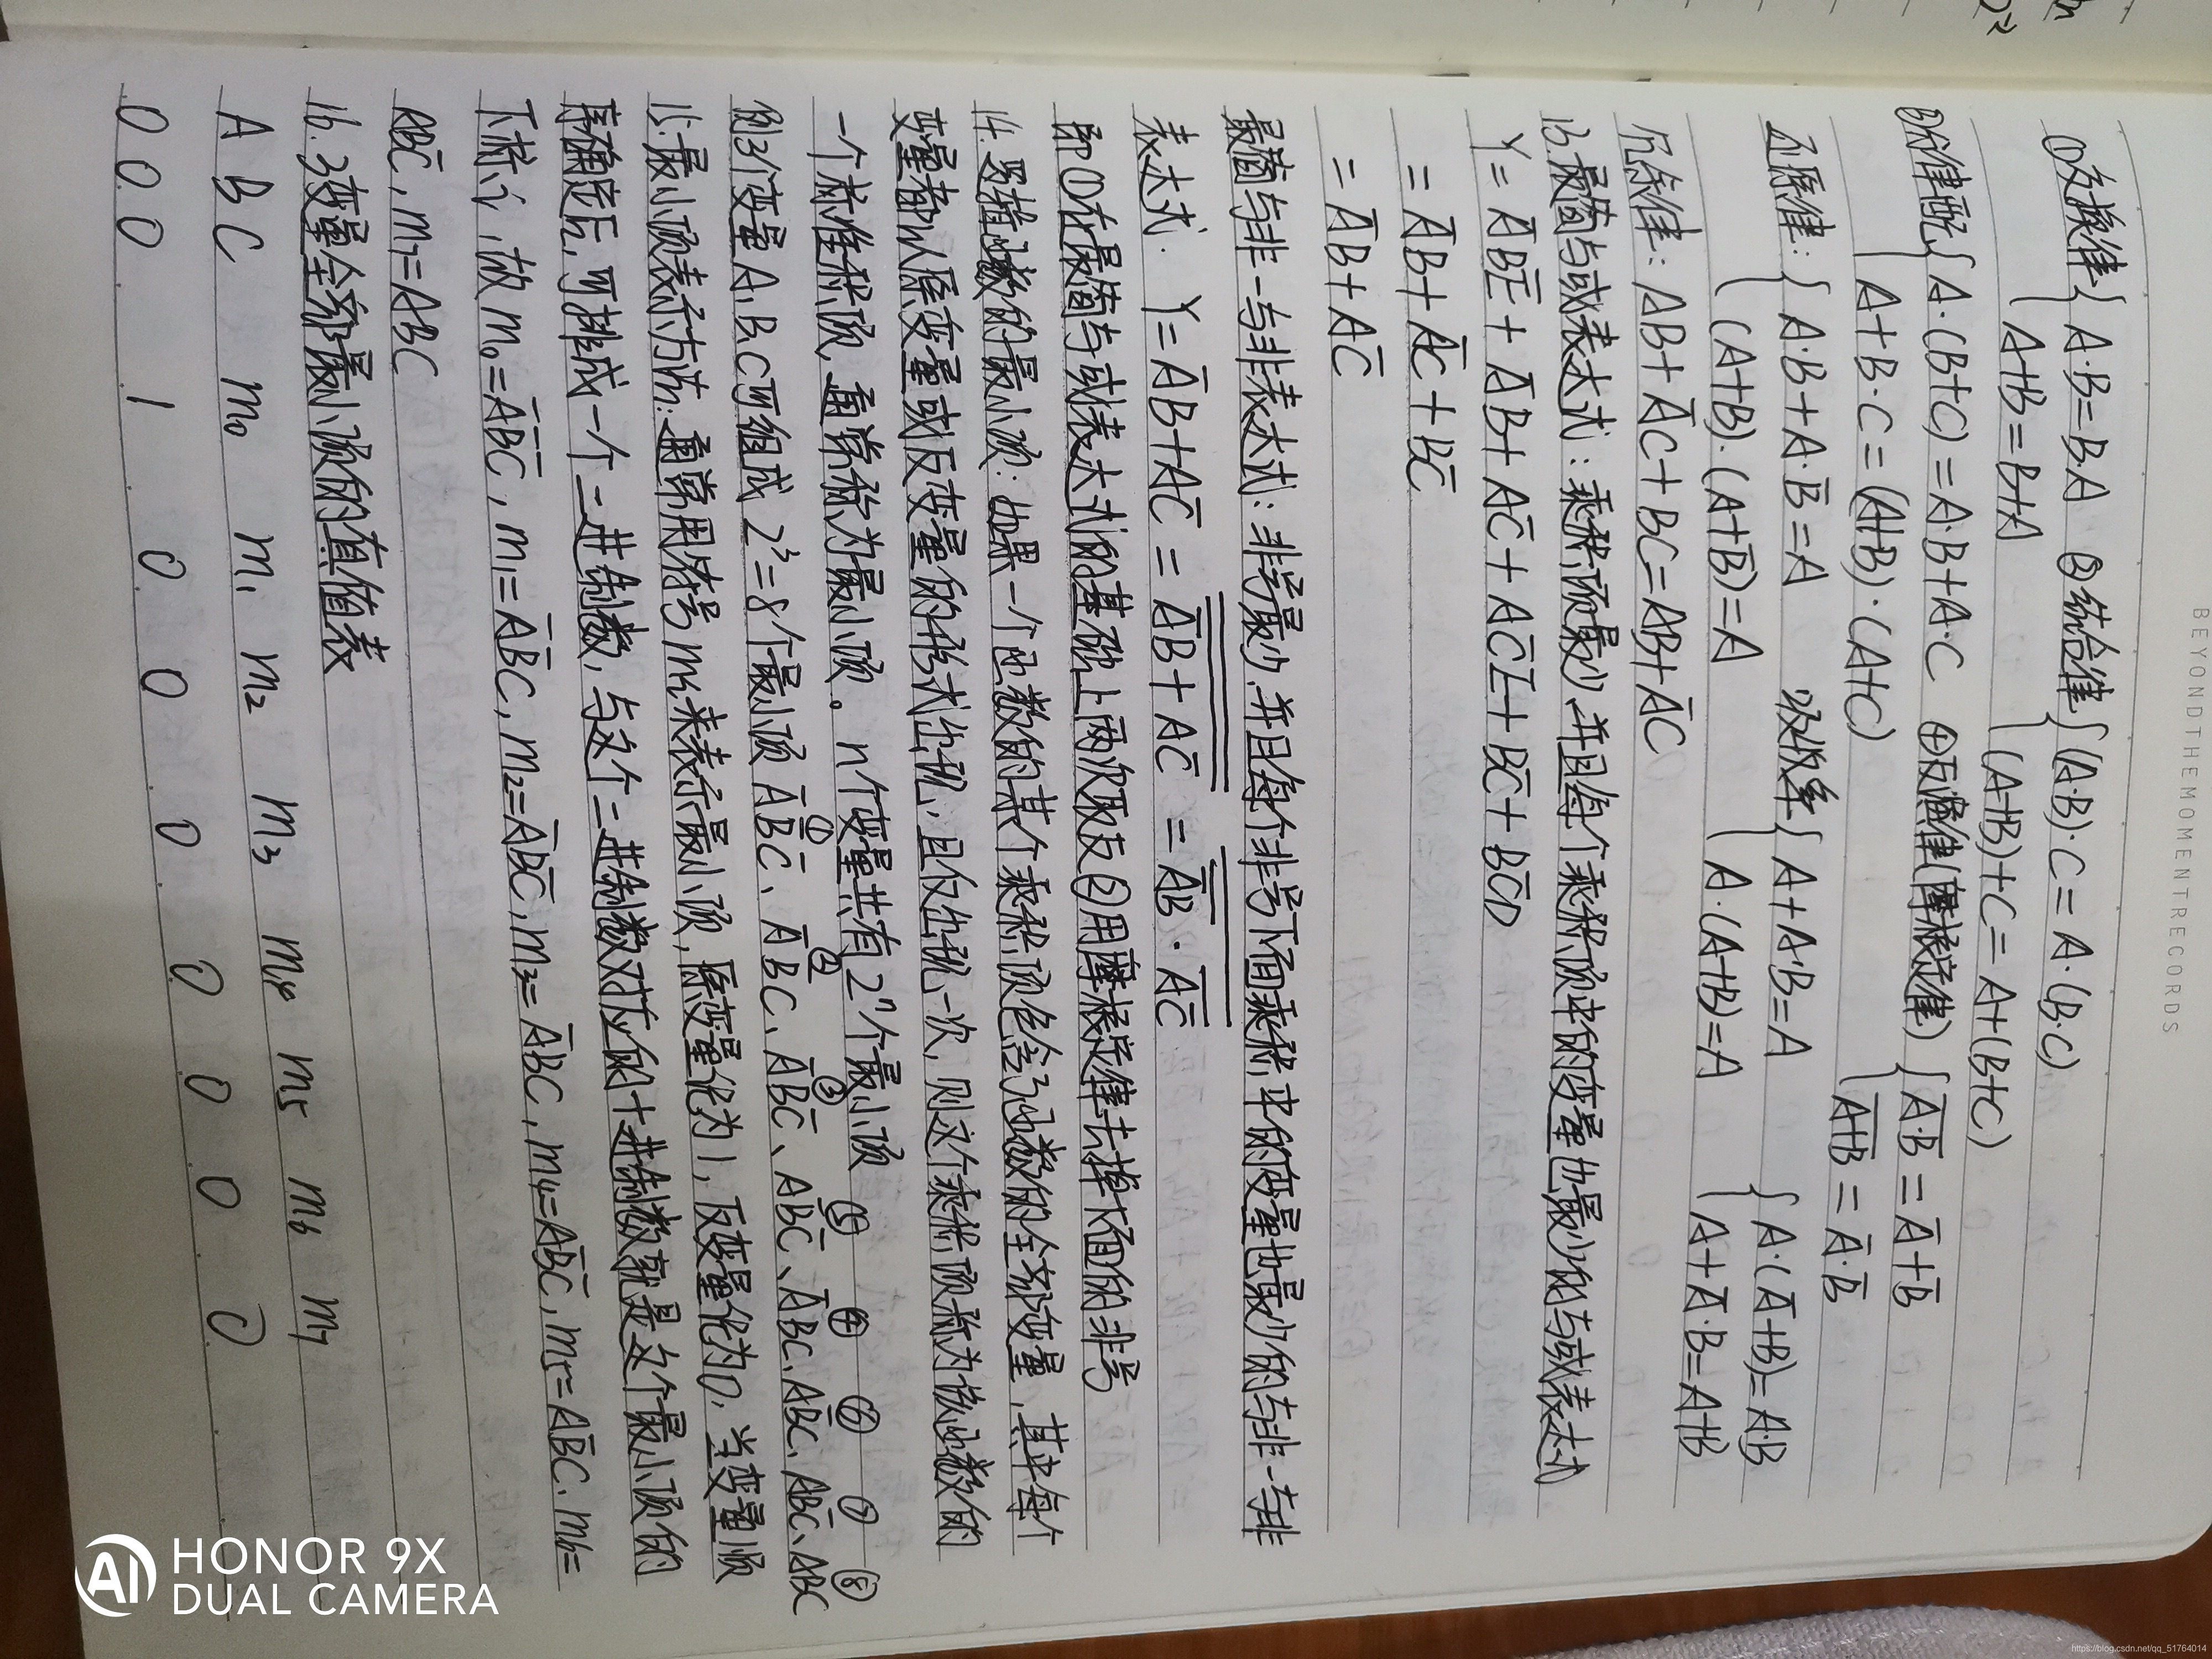 BEYONDTHEMOMENTRECORDS
①交换律{ A·B=B·A ②结合律{ (A·B)·C=A·(B·C)
A+B=B+A (A+B)+C=A+(B+C)
③分配律{ A·(B+C)=A·B+A·C ④反演律(摩根定律){ A̅·̅B̅=A̅+B̅
A+B·C=(A+B)·(A+C) A̅+̅B̅=A̅·B̅
还原律:{ A·B+A·B̅=A 吸收率{ A+A·B=A { A·(A̅+B)=A·B
(A+B)·(A+B̅)=A A·(A+B)=A A+A̅·B=A+B
冗余律: AB+A̅C+BC=AB+A̅C
13.最简与或表达式:乘积项最少,并且每个乘积项中的变量也最少的与或表达式
Y=A̅BE̅+A̅B+AC̅+AC̅E+BC̅+BC̅D
=A̅B+AC̅+BC̅
=A̅B+AC̅
最简与非-与非表达式:非号最少,并且每个非号下面乘积中的变量也最少的与非-与非
表达式. Y=A̅B+AC̅=A̿̅B̿+̿A̿C̿̅=A̿̅B̿·̅A̿C̿̅
即①在最简与或表达式的基础上两次取反②用摩根定律去掉下面的非号
14.逻辑函数的最小项:如果一个函数的某个乘积项包含了函数的全部变量,其中每个
变量都以原变量或反变量的形式出现,且仅出现一次,则这个乘积项称为该函数的
一个标准积项,通常称为最小项。n个变量共有2ⁿ个最小项
① ② ③ ⑤ ④ ⑥ ⑦ ⑧
例3个变量A、B、C可组成2³=8个最小项 A̅B̅C̅、A̅B̅C、A̅BC̅、AB̅C̅、A̅BC、AB̅C、ABC̅、ABC
15.最小项表示方法:通常用符号mi来表示最小项,原变量化为1,反变量化为0,当变量顺
序确定后,可排成一个二进制数,与这个二进制数对应的十进制数就是这个最小项的
下标i,故m₀=A̅B̅C̅,m₁=A̅B̅C,m₂=A̅BC̅,m₃=A̅BC,m₄=AB̅C̅,m₅=AB̅C,m₆=
ABC̅,m₇=ABC
16.3变量全部最小项的真值表
A B C m₀ m₁ m₂ m₃ m₄ m₅ m₆ m₇
0 0 0 1 0 0 0 0 0 0 0
HONOR 9X
DUAL CAMERA
AI
https://blog.csdn.net/qq_51764014